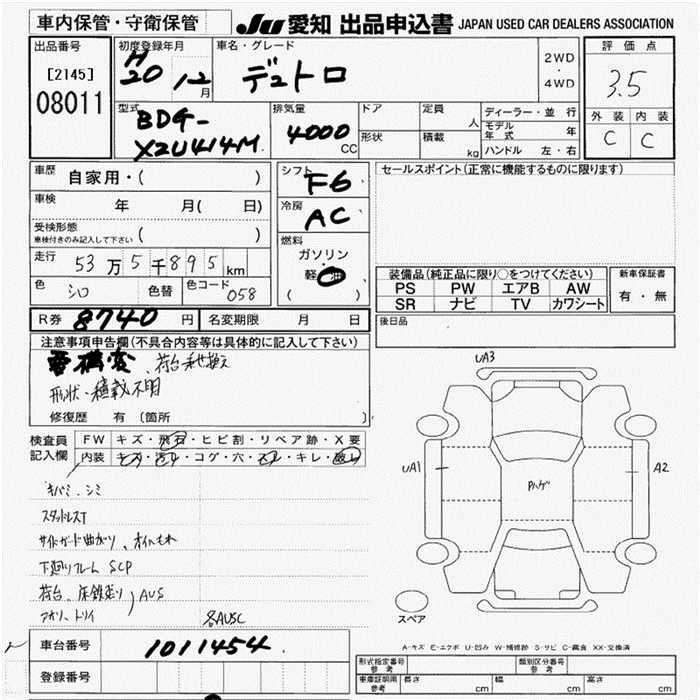 車内保管・守衛保管
JU 愛知 出品申込書 JAPAN USED CAR DEALERS ASSOCIATION
出品番号
[2145]
08011
初度登録年月
H20 12月
車名・グレード
デュトロ
2WD
・
4WD
評価点
3.5
外装 内装
C C
型式
BDG-
XZU414M
排気量
4000 CC
ドア
形状
定員 人
積載 kg
ディーラー・並行
モデル年式 年
ハンドル 左・右
車歴 自家用・( )
車検 年 月( 日)
受検形態
車検付きのみ記入して下さい ( )
走行 53万5千895km
色 シロ 色替 色コード 058
シフト F6
冷房 AC
燃料
ガソリン
・
軽油
( )
セールスポイント(正常に機能するものに限ります)
装備品(純正品に限り○をつけてください)
PS PW エアB AW
SR ナビ TV カワシート
新車保証書
有・無
R券 8740円 名変期限 月 日
後日品
注意事項申告欄(不具合内容等は具体的に記入して下さい)
要構変、荷台載せ換え
形状・積載不明
修復歴 有 (箇所 )
検査員
記入欄
FW キズ・飛石・ヒビ割・リペア跡・X要
内装 キズ・汚れ・コゲ・穴・スレ・キレ・破レ
キバミ・シミ
スタッドレスT
サイドガード曲がり、オイルもれ
下廻りフレーム SCP
荷台、床鉄張り
アオリ、トリイ ) AUS
各AUSC
UA3
UA1
Pハゲ
A2
スペア
A-キズ E-エクボ U-凹み W-補修跡 S-サビ C-腐食 XX-交換済
車台番号 1011454
登録番号
形式指定番号 参考
類別区分番号 参考
車庫証明用 参考 長さ cm 幅 cm 高さ cm